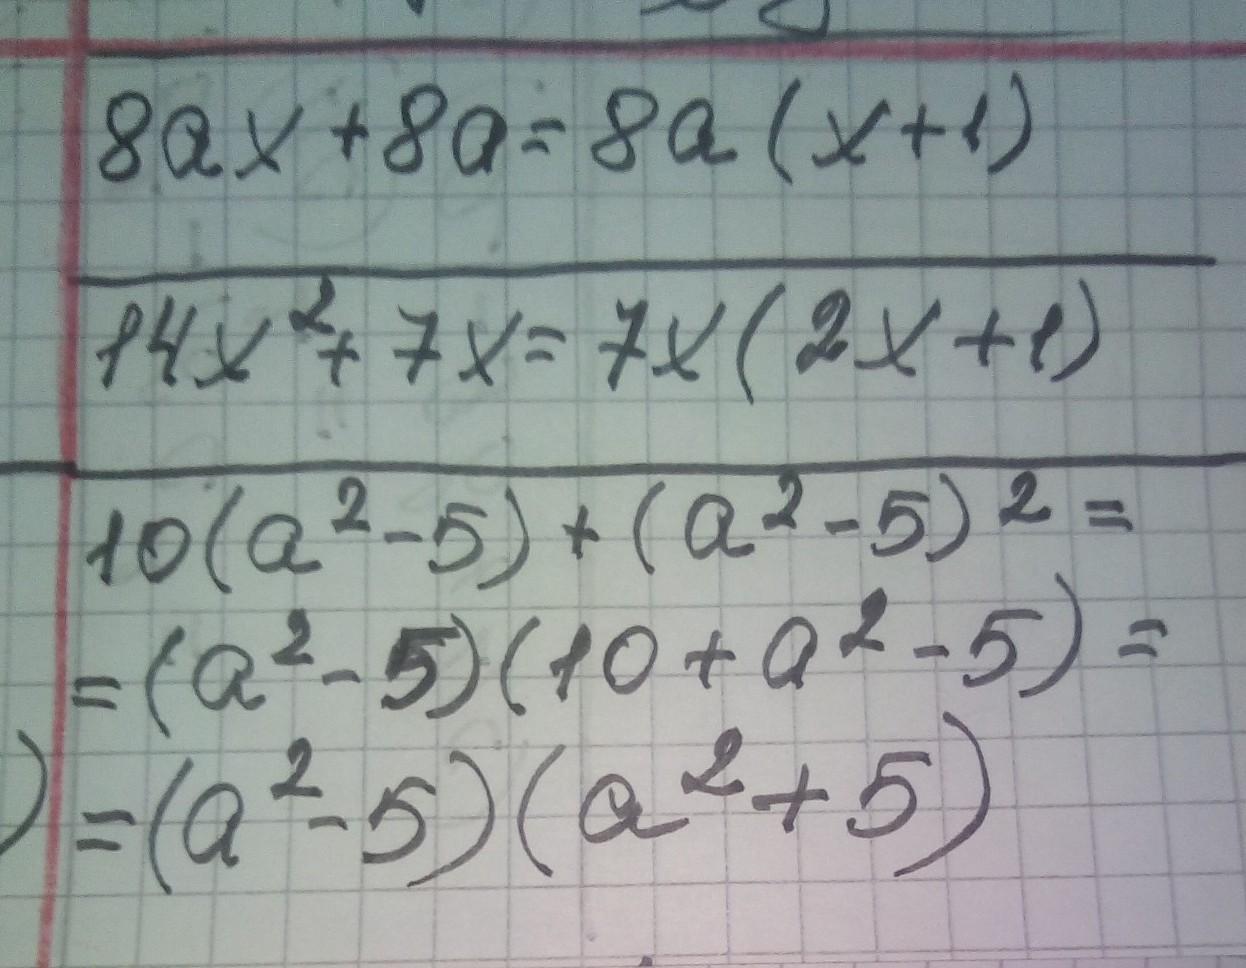 8ax + 8a = 8a (x + 1)
14x² + 7x = 7x (2x + 1)
10(a² - 5) + (a² - 5)² =
= (a² - 5)(10 + a² - 5) =
) = (a² - 5)(a² + 5)